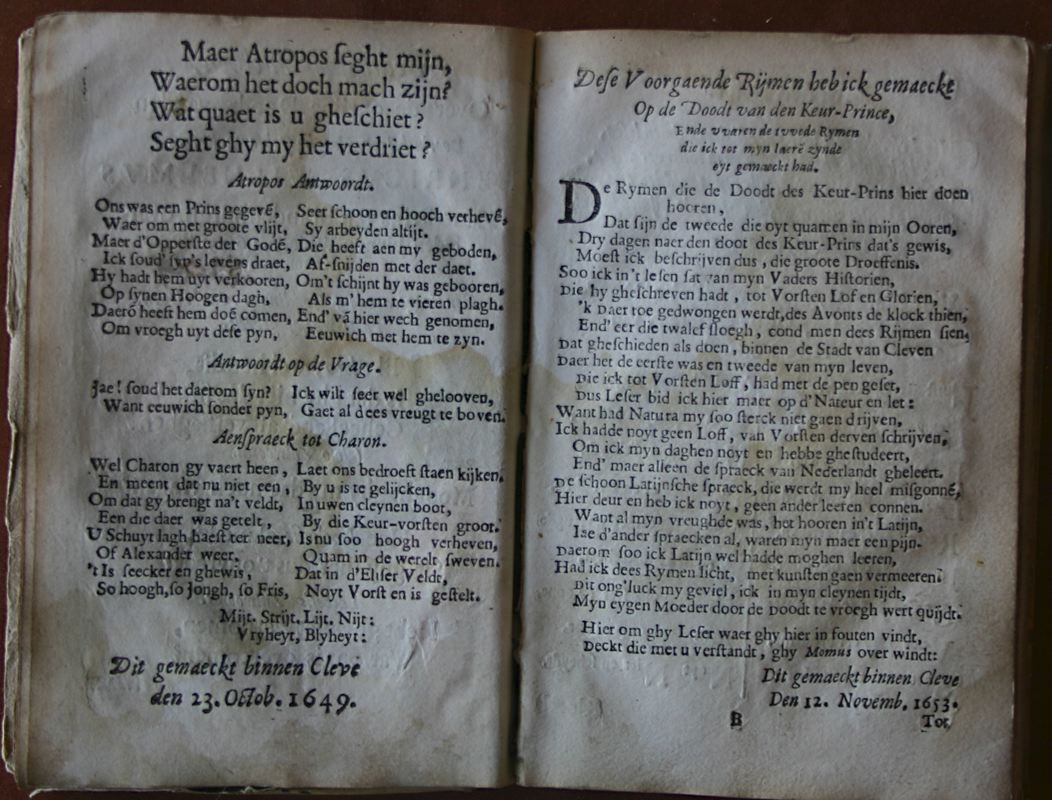 Maer Atropos ſeght mijn,
Waerom het doch mach zijn?
Wat quaet is u gheſchiet?
Seght ghy my het verdriet?
Atropos Antwoordt.
Ons was een Prins gegevē, Seer ſchoon en hooch verhevē,
Waer om met groote vlijt, Sy arbeyden altijt.
Maer d'Opperſte der Godē, Die heeft aen my geboden,
Ick ſoud' ſyn's levens draet, Af-ſnijden met der daet.
Hy hadt hem uyt verkooren, Om't ſchijnt hy was gebooren,
Op ſynen Hoogen dagh, Als m' hem te vieren plagh.
Daerō heeft hem doē comen, End' vā hier wech genomen,
Om vroegh uyt deſe pyn, Eeuwich met hem te zyn.
Antwoordt op de Vrage.
Jae! ſoud het daerom ſyn? Ick wilt ſeer wel ghelooven,
Want eeuwich ſonder pyn, Gaet al dees vreugt te boven.
Aenſpraeck tot Charon.
Wel Charon gy vaert heen, Laet ons bedroeft ſtaen kijken,
En meent dat nu niet een, By u is te gelijcken,
Om dat gy brengt na't veldt, In uwen cleynen boot,
Een die daer was getelt, By die Keur-vorſten groot.
U Schuyt lagh haeſt ter neer, Is nu ſoo hoogh verheven,
Of Alexander weer. Quam in de werelt ſweven.
't Is ſeecker en ghewis, Dat in d'Eliſer Veldt,
So hoogh, ſo Jongh, ſo Fris, Noyt Vorſt en is geſtelt.
Mijt. Strijt. Lijt. Nijt:
Vryheyt, Blyheyt:
Dit gemaeckt binnen Cleve
den 23. Octob. 1649.
Deſe Voorgaende Rijmen heb ick gemaeckt
Op de Doodt van den Keur-Prince,
Ende vvaren de tvvede Rymen
die ick tot myn laerē zynde
oyt gemaeckt had.
De Rymen die de Doodt des Keur-Prins hier doen
hooren,
Dat ſijn de tweede die oyt quamen in mijn Ooren,
Dry dagen naer den doot des Keur-Prins dat's gewis,
Moeſt ick beſchrijven dus, die groote Droeffenis.
Soo ick in't leſen ſat van myn Vaders Hiſtorien,
Die hy gheſchreven hadt, tot Vorſten Lof en Glorien,
'k Daer toe gedwongen werdt, des Avonts de klock thien,
End' eer die twalef ſloegh, cond men dees Rijmen ſien,
Dat gheſchieden als doen, binnen de Stadt van Cleven
Daer het de eerſte was en tweede van myn leven,
Die ick tot Vorſten Loff, had met de pen geſet,
Dus Leſer bid ick hier maer op d'Nateur en let:
Want had Natura my ſoo ſterck niet gaen drijven,
Ick hadde noyt geen Loff, van Vorſten derven ſchrijven,
Om ick myn daghen noyt en hebbe gheſtudeert,
End' maer alleen de ſpraeck van Nederlandt gheleert.
De ſchoon Latijnſche ſpraeck, die werdt my heel miſgonnē,
Hier deur en heb ick noyt, geen ander leeren connen.
Want al myn vreughde was, het hooren in't Latijn,
Iae d'ander ſpraecken al, waren myn maer een pijn.
Daerom ſoo ick Latijn wel hadde moghen leeren,
Had ick dees Rymen licht, met kunſten gaen vermeeren.
Dit ong'luck my geviel, ick in myn cleynen tijdt,
Myn eygen Moeder door de Doodt te vroegh wert quijdt.
Hier om ghy Leſer waer ghy hier in fouten vindt,
Deckt die met u verſtandt, ghy Momus over windt:
Dit gemaeckt binnen Cleve
Den 12. Novemb. 1653.
B
Tot